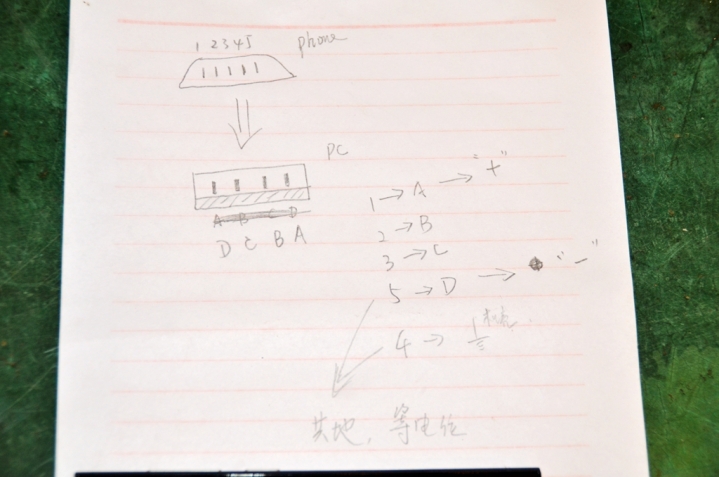 1 2 3 4 5 phone
PC
A B C D
D C B A
1 → A → "+"
2 → B
3 → C
5 → D → "−"
4 →
共地，等电位